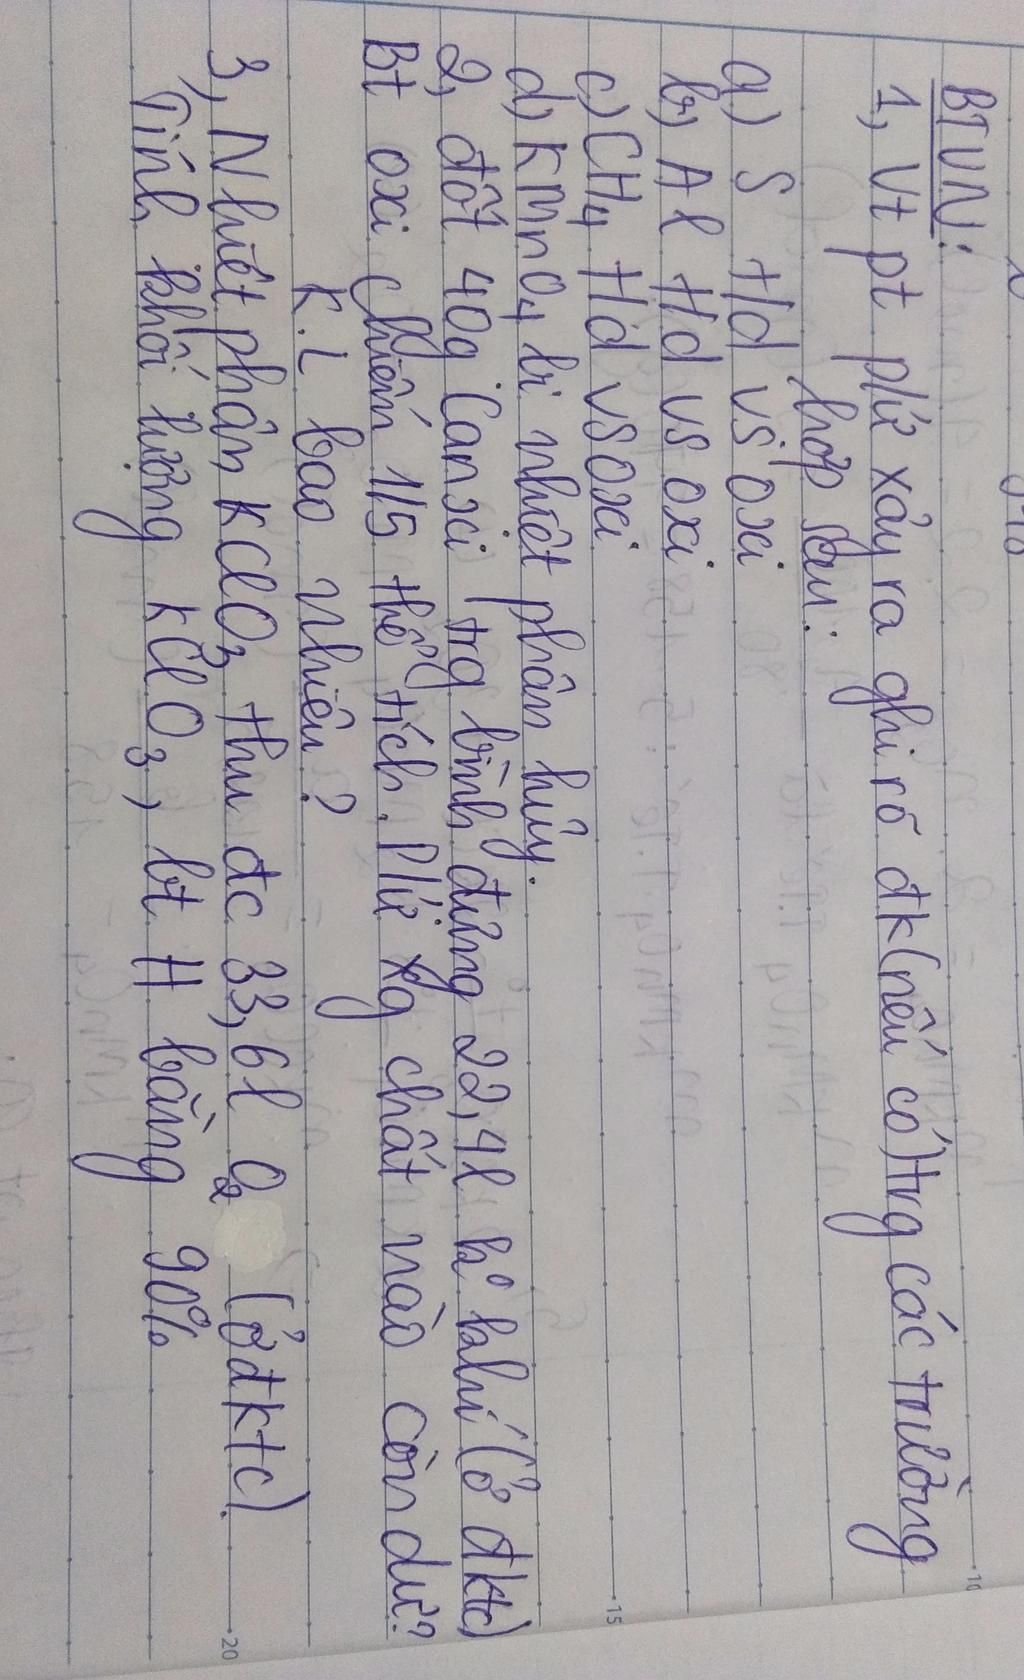 BTVN:
1, Vt pt pứ xảy ra ghi rõ đk (nếu có) trg các trường
hợp sau:
a) S t/d vs oxi
b) Al t/d vs oxi
c) CH4 t/d vs oxi
d) KMnO4 bị nhiệt phân hủy.
2, đốt 40g Canxi trg bình đựng 22,4l k° khí (ở đktc)
Bt oxi chiếm 1/5 thể tích. Pứ xg chất nào còn dư?
K.L bao nhiêu?
3, Nhiệt phân KClO3 thu đc 33,6l O2 (ở đktc).
Tính khối lượng KClO3, bt H bằng 90%
10
15
20